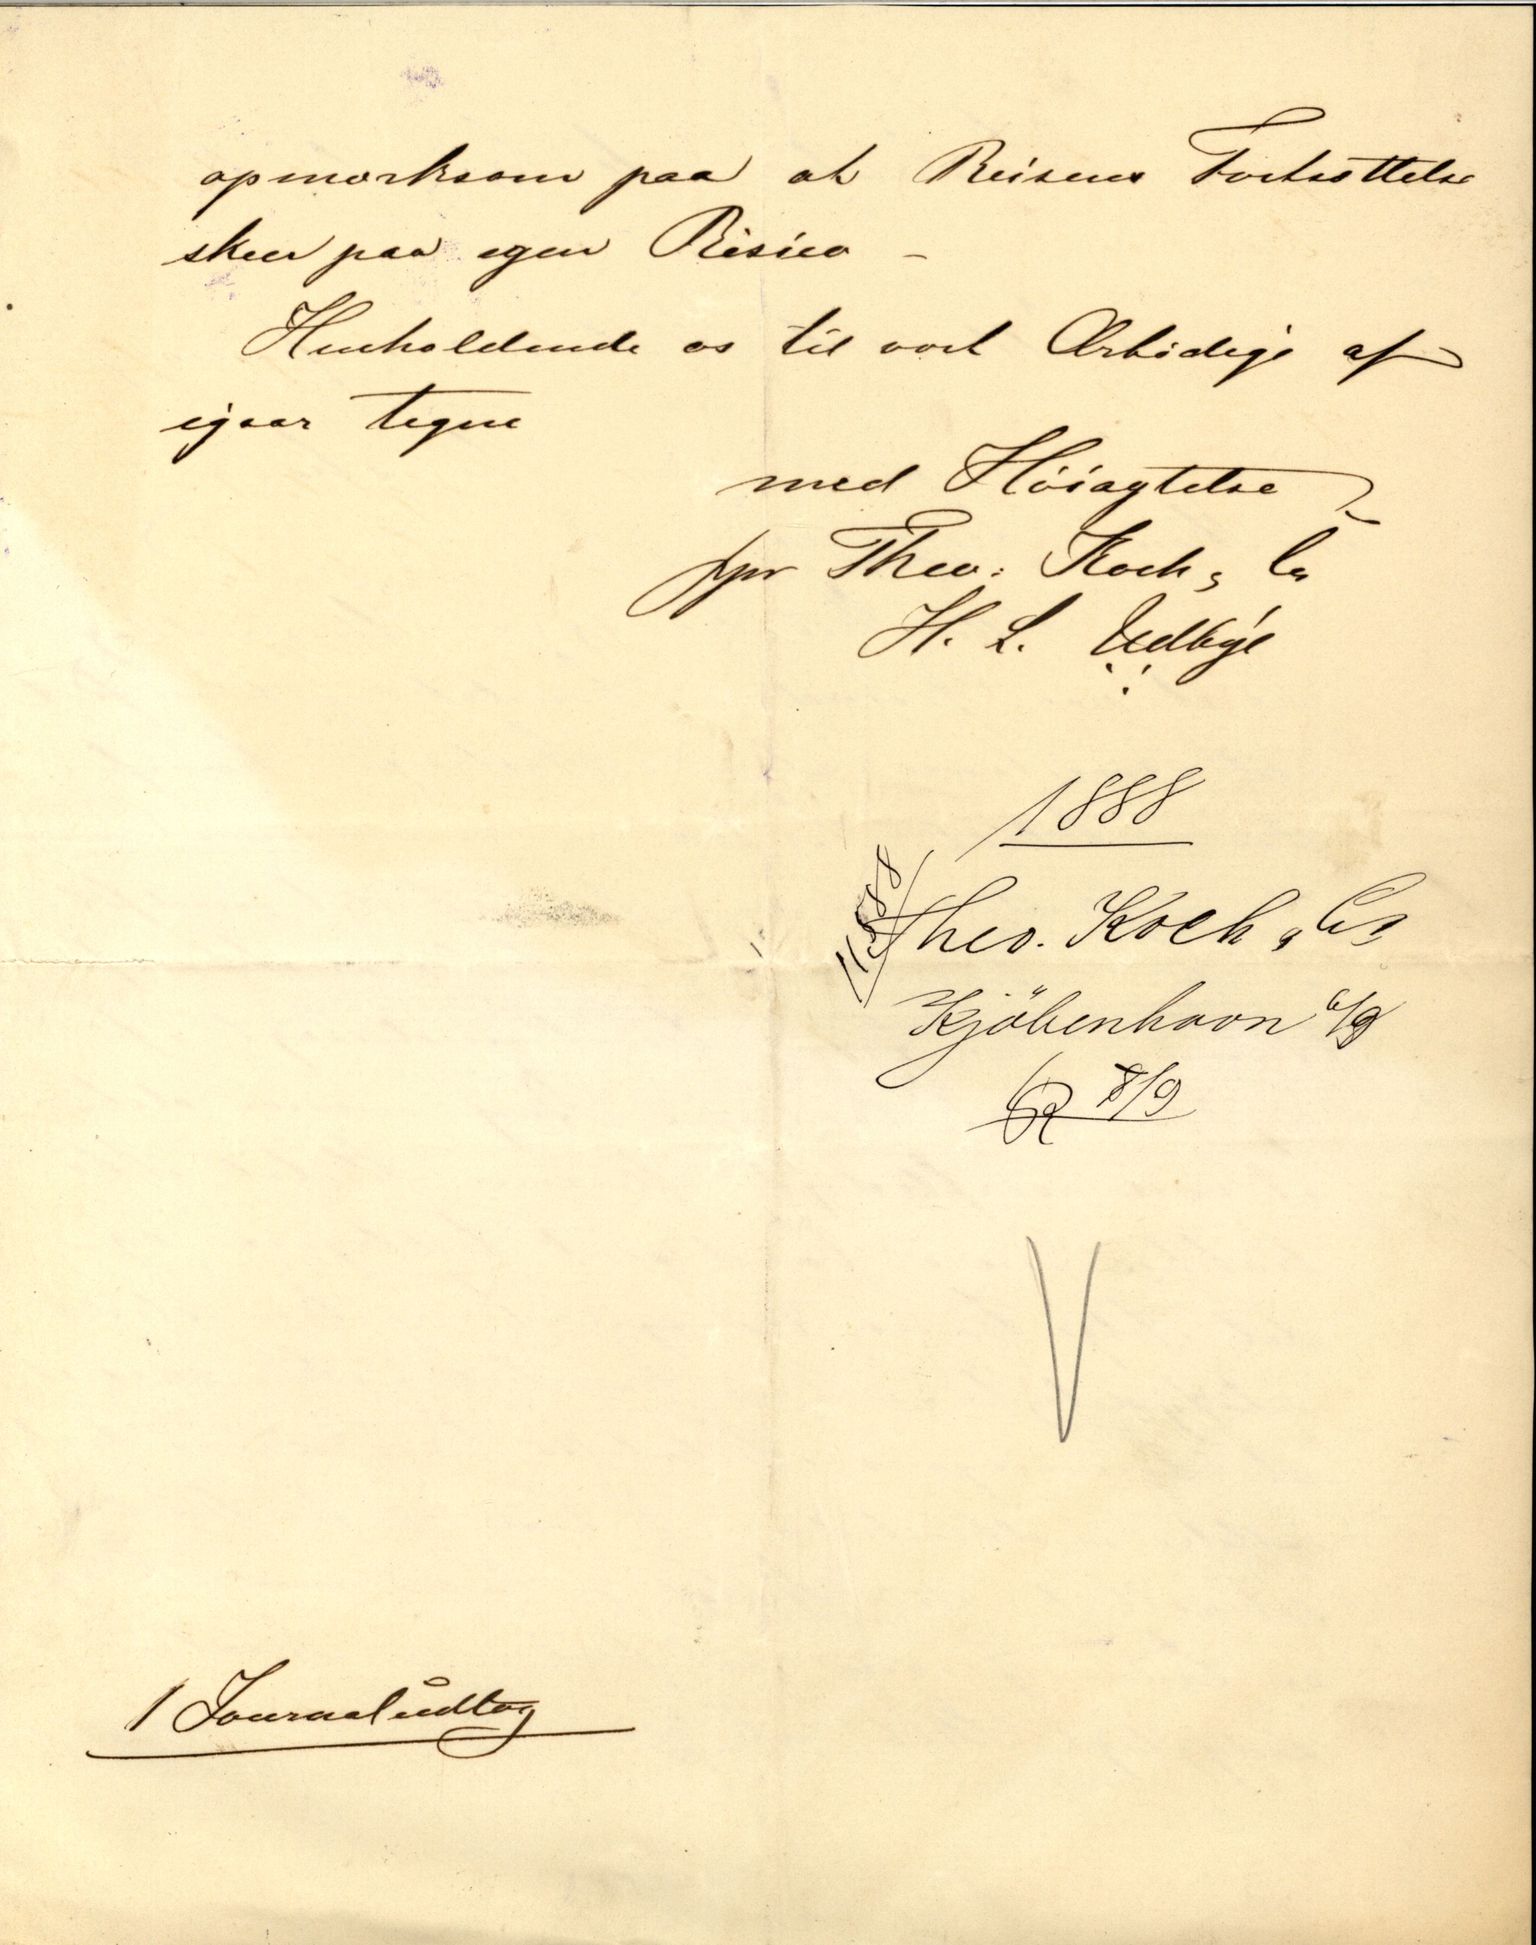 opmærksom paa at Reisens Fortsættelse
skeer paa egen Risico –
Henholdende os til vort Ærbødige af
igaar tegne
med Höiagtelse
ppr Theo: Koch & Co
H. L. Udbye
1888
Theo. Koch & Co
Kjöbenhavn 6/9
R 8/9
1 Journaludtog